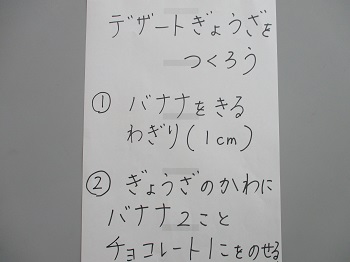 デザートぎょうざを
つくろう
① バナナをきる
わぎり(1cm)
② ぎょうざのかわに
バナナ2こと
チョコレート1こをのせる